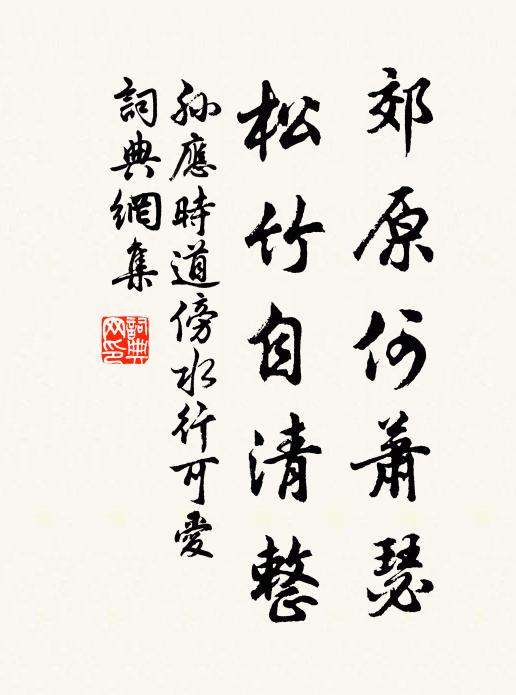 郊原何蕭瑟
松竹自清整
孫應時道傍水行可愛
詞典網集
詞典网印